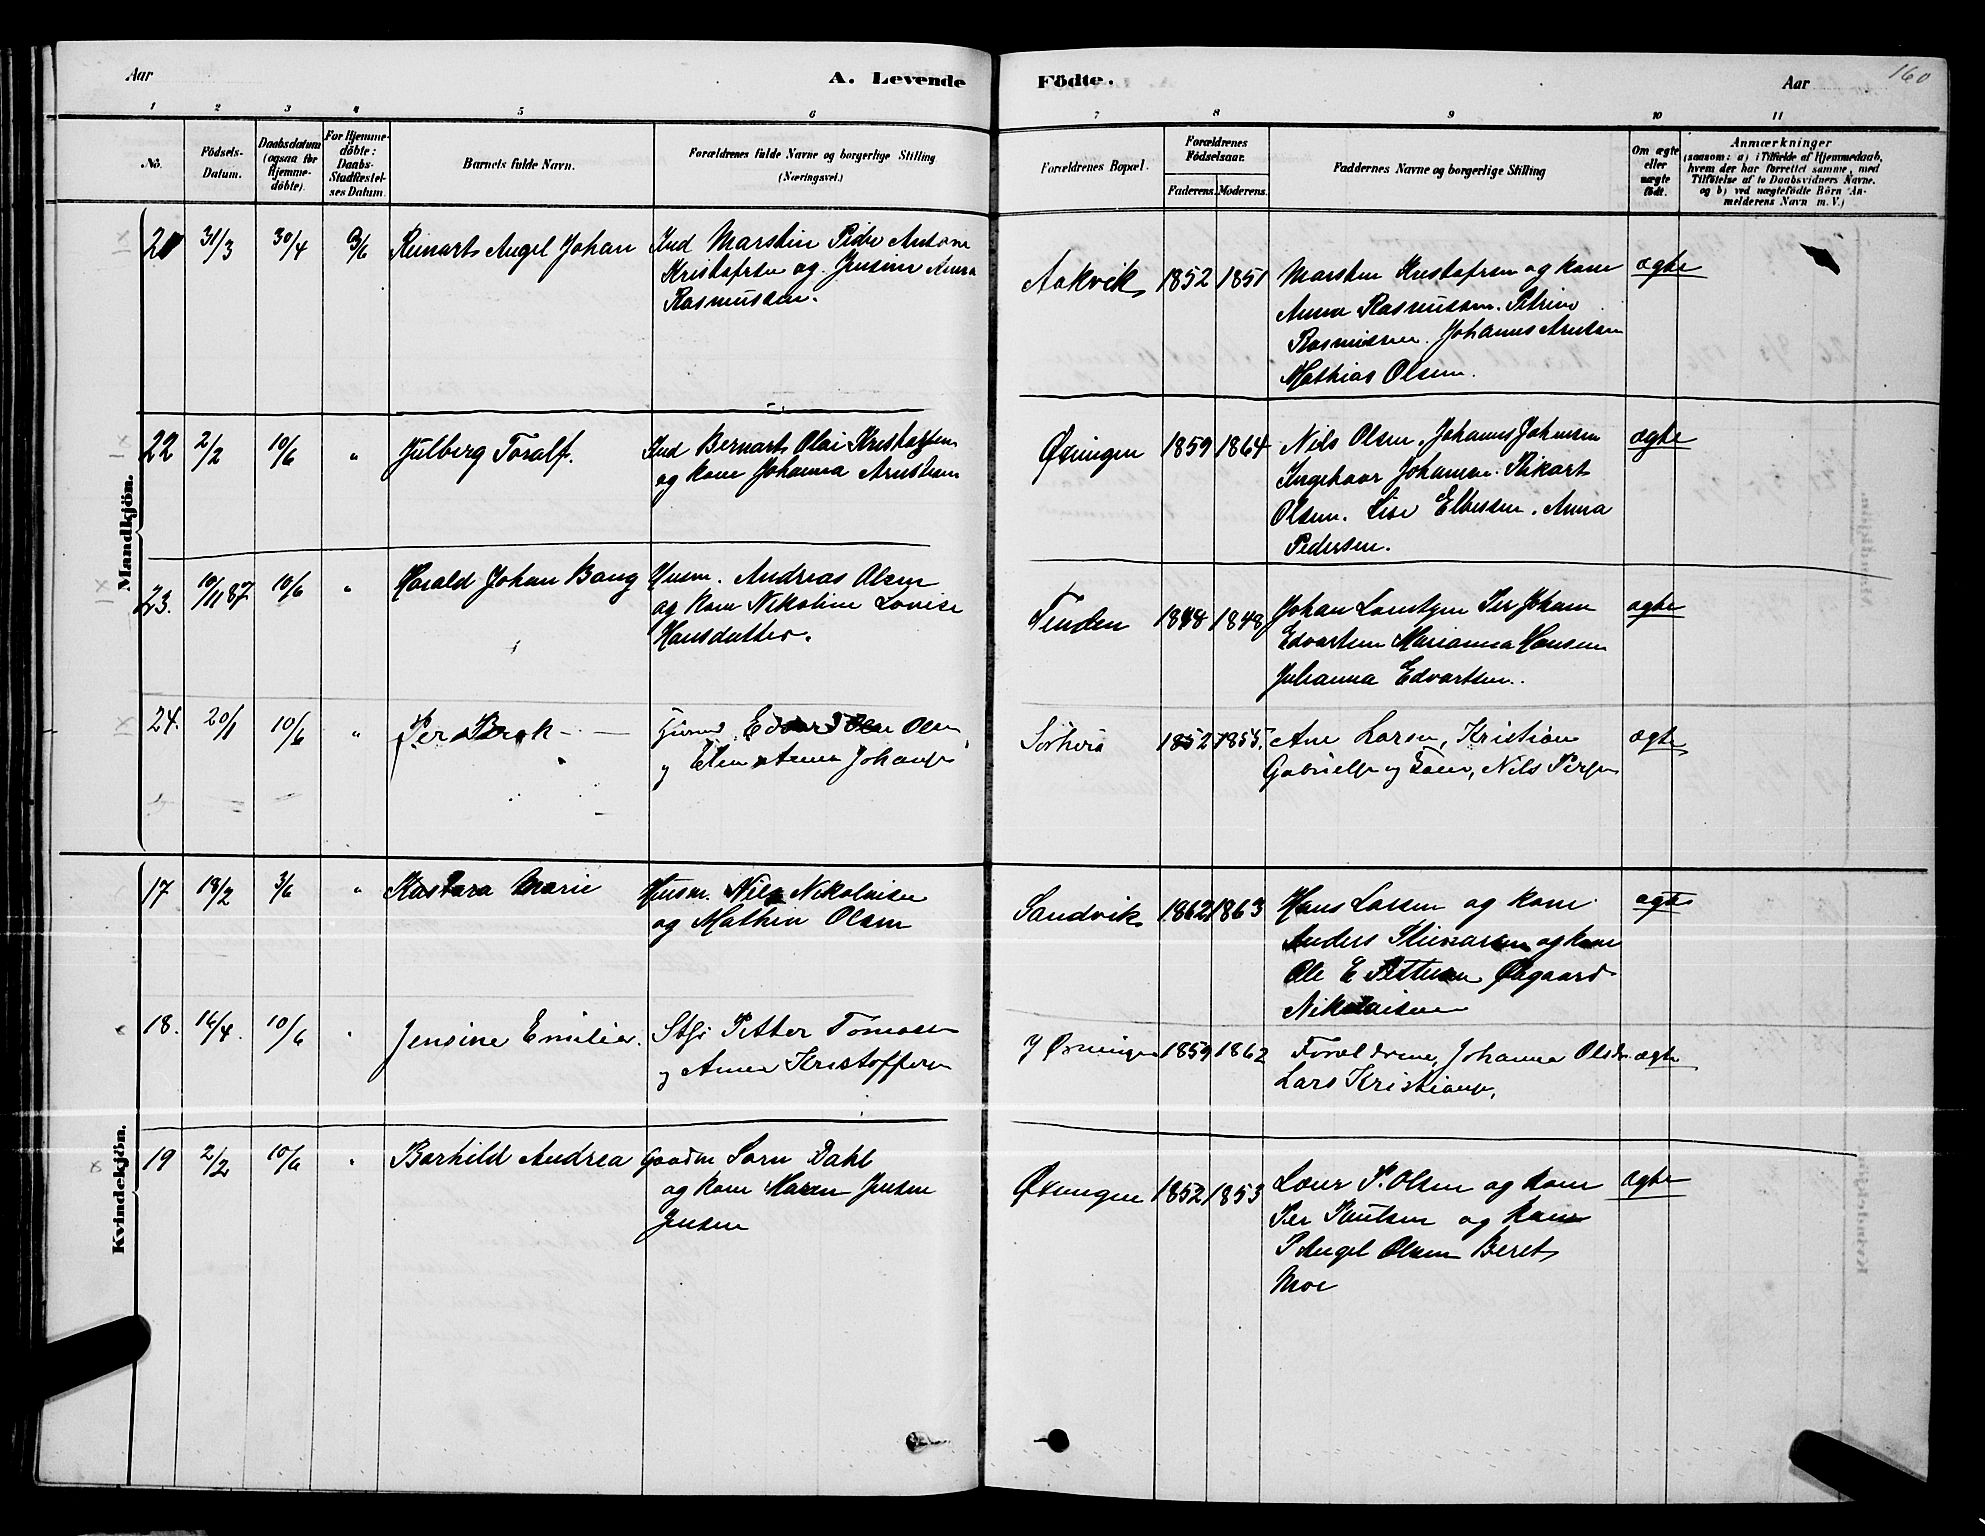 160
Aar
A. Levende
Födte.
Aar
1 2 3 4 5 6 7 8 9 10 11
No.
Födsels-
Datum.
Daabsdatum
(ogsaa for
Hjemme-
döbte).
For Hjemme-
döbte:
Daabs-
Stadfæstel-
ses Datum.
Barnets fulde Navn.
Forældrenes fulde Navne og borgerlige Stilling
(Næringsvei.)
Forældrenes Bopæl.
Forældrenes
Födselsaar.
Faderens. Moderens.
Faddernes Navne og borgerlige Stilling
Om ægte
eller
uægte
födt.
Anmærkninger
(saasom: a) i Tilfælde af Hjemmedaab,
hvem der har forrettet samme, med
Tilföielse af to Daabsvidners Navne,
og b) ved uægtefödte Börn An-
melderens Navn m. V.)
Mandkjön.
21 31/3 30/4 3/6 Reinart Angel Johan
Ind Marstin Peder Antoni
Kristofrsen og Jensine Anna
Rasmussen.
Aakvik 1852 1851
Marstin Kristofrsen og kone
Anna Rasmussen. Petrine
Rasmussen. Johannes Arntsen
Mathias Olsen.
ægte
22 2/2 10/6 " Julberg Toralf.
Ind Bernart Olai Kristoffersen
og kone Johanna Arntsen
Øxningen 1859 1864
Nils Olsen. Johannes Johansen
Ingeboor Johansen. Rikart
Olsen. Lise Elbersen. Anna
Pedersen.
ægte
23. 10/11 87 10/6 " Harald Johan Bang
Husm. Andreas Olsen
og kone Nikoline Lovise
Hansdatter.
Tenden 1848 1848
Johan Lorntsen Per Johan
Edvartsen Marianna Hansen
Johanna Edvartsen.
ægte
24. 20/1 10/6 " Per Berok
Edvard Olsen
og Elen Anna Johansen
1852 1855.
Ane Larsen, Kristian
Gabrielsen og Kone, Nils Persen
ægte
Kvindekjön.
17 18/2 3/6 " Kastara Marie
Husm. Nils Nikolaisen
og Mathea Olsen
Sandvik 1862 1863
Hans Larsen og kone
Anders Steinarsen og kone
Ole E Pettersen Øxgaard
Nikolaisen
ægte
18. 16/4. 10/6 " Jensine Emilie.
Petter Tomasen
og Anna Kristoffersen
Y Øxningen 1859 1862
Forældrene, Johanna Olsdr.
Lars Kristiansen.
ægte
19 2/2 10/6 " Borhild Andrea
Gaardm Sørn Dahl
og kone Maren Jensen
Jensen
Øxningen 1852 1853
Laur P. Olsen og kone
Per Knutsen og kone
P Angel Olsen Beret
Moe
ægte